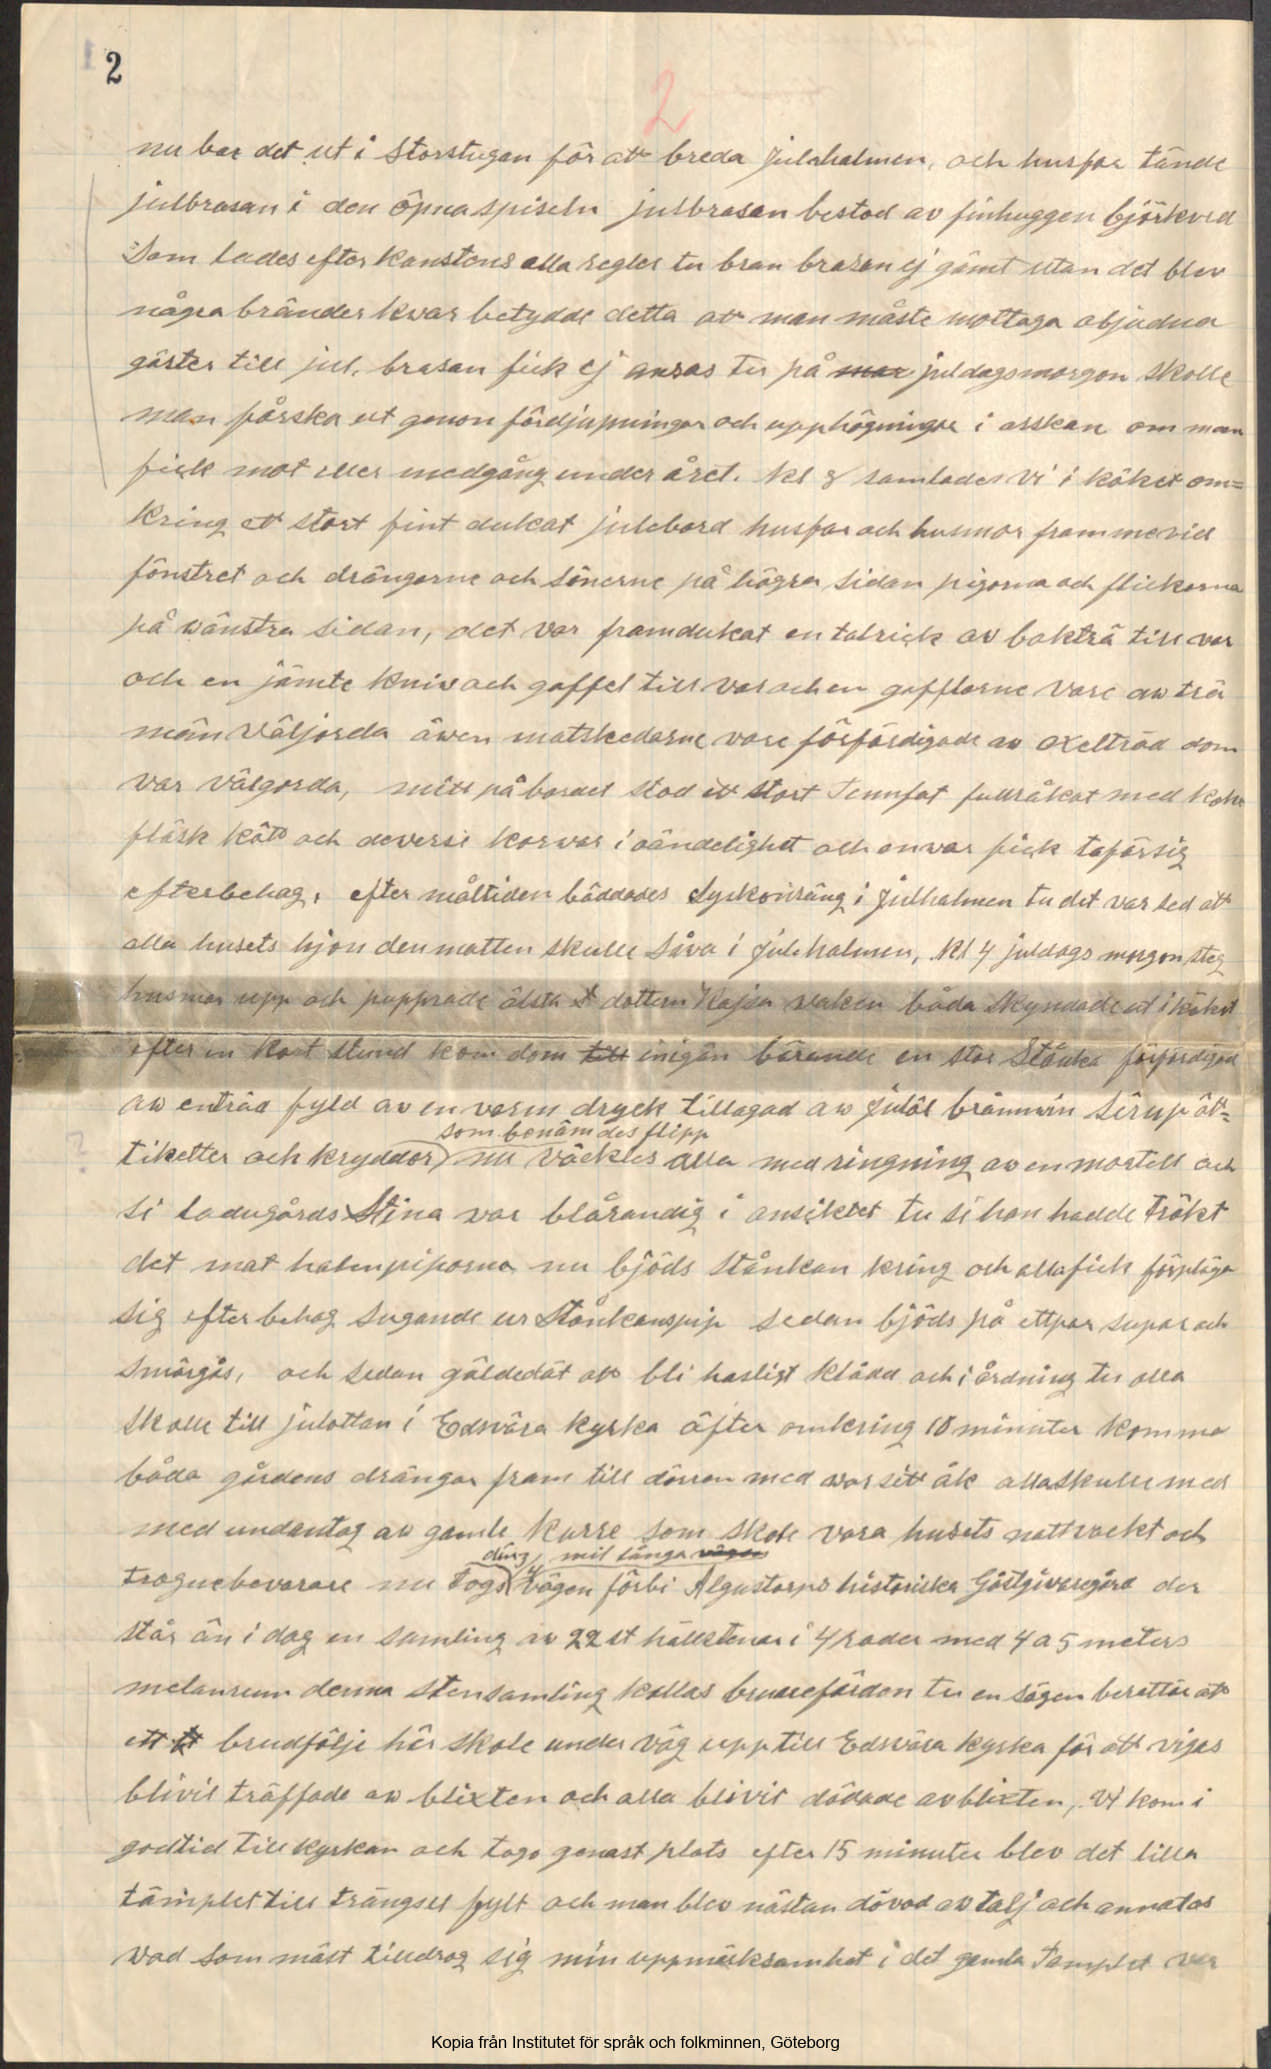 2
2
nu bar det ut i Storstugan för att breda Julehalmen, och husfar tände
julbrasan i den öpna spiseln julbrasan bestod av finhuggen björkved
Som lades efter konstens alla regler tu bran brasan ej jämt utan det blev
några bränder kvar betydde detta att man måste mottaga objudna
gäster till jul, brasan fick ej ansas tu på juldagsmorgon skolle
man fårska ut genom fördjupningar och upphögningar i asskan om man
fick mot eller medgång under året. kl 8 samlades vi i köket om=
kring ett stort fint dukat julebord husfar och husmor framme vid
fönstret och drängarne och sönerne på högra sidan pigorna och flickorna
på wänstra sidan, det var framdukat en talrick av bokträ till var
och en jämte kniv och gaffel till var och en gafflarne vare aw trä
män väljorda äwen matskedarne vore förfärdigade av oxelträd dom
var välgorda, mitt på bordet stod ett stort Tennfat fullråkat med kokt
fläsk kött och deversi korvar i oändelighet och envar fick taförsig
efterbehag, efter måltiden bäddades Syskonsäng i Julhalmen tu det var sed att
alla husets hjon den natten skulle såva i Julehalmen, kl 4 juldags morgon steg
husmor upp och purrade älsta dottern Kajsa vaken båda skyndade ut i köket
efter en kort stund kom dom till inigän bärande en stor Stånka förfärdigad
aw enträä fyld av en varm dryck tillagad aw Julöl brännwin Sirup ät=
som benämdes flipp
tiketter och kryddor nu väcktes alla med ringning av en mortell och
si ladugårds Stina var blårandig i ansiktet tu si hon hadde tråkt
det mot halmpiporna nu bjöds stånkan kring och alla fick förpläga
sig efter behag sugande ur Stånkanspip sedan bjöds på ettpar supar och
smörgås, och sedan gäldedät att bli hasligt klädd och i årdning tu alla
skolle till julottan i Edsvära kyrka äfter omkring 10 minuter komma
båda gårdens drängar fram till dörren med var sitt åk alla skulle med
med undantag av gamle Kurre som skole vara husets nattvackt och
ding mil långa vägen
trognebevarare nu togs vägen förbi Algustorps historiska Gästgivaregård der
står än i dag en samling av 22 st hällstenar i 4 rader med 4 a 5 meters
melanrum denna stensamling kallas bruarefärden tu en sägen berättar att
ett brudfölje här skole under väg upp till Edsvära kyrka för att vigas
blivit träffade aw blixten och alla blivit dödade av blixten, Vi kom i
godtid till kyrkan och togo genast plats efter 15 minuter blev det lilla
tämplet till trängsel fyllt och man blev nästan dövad av talj och annatos
vad som mäst tilldrog sig min uppmärksamhet i det gamla Tamplet var
Kopia från Institutet för språk och folkminnen, Göteborg